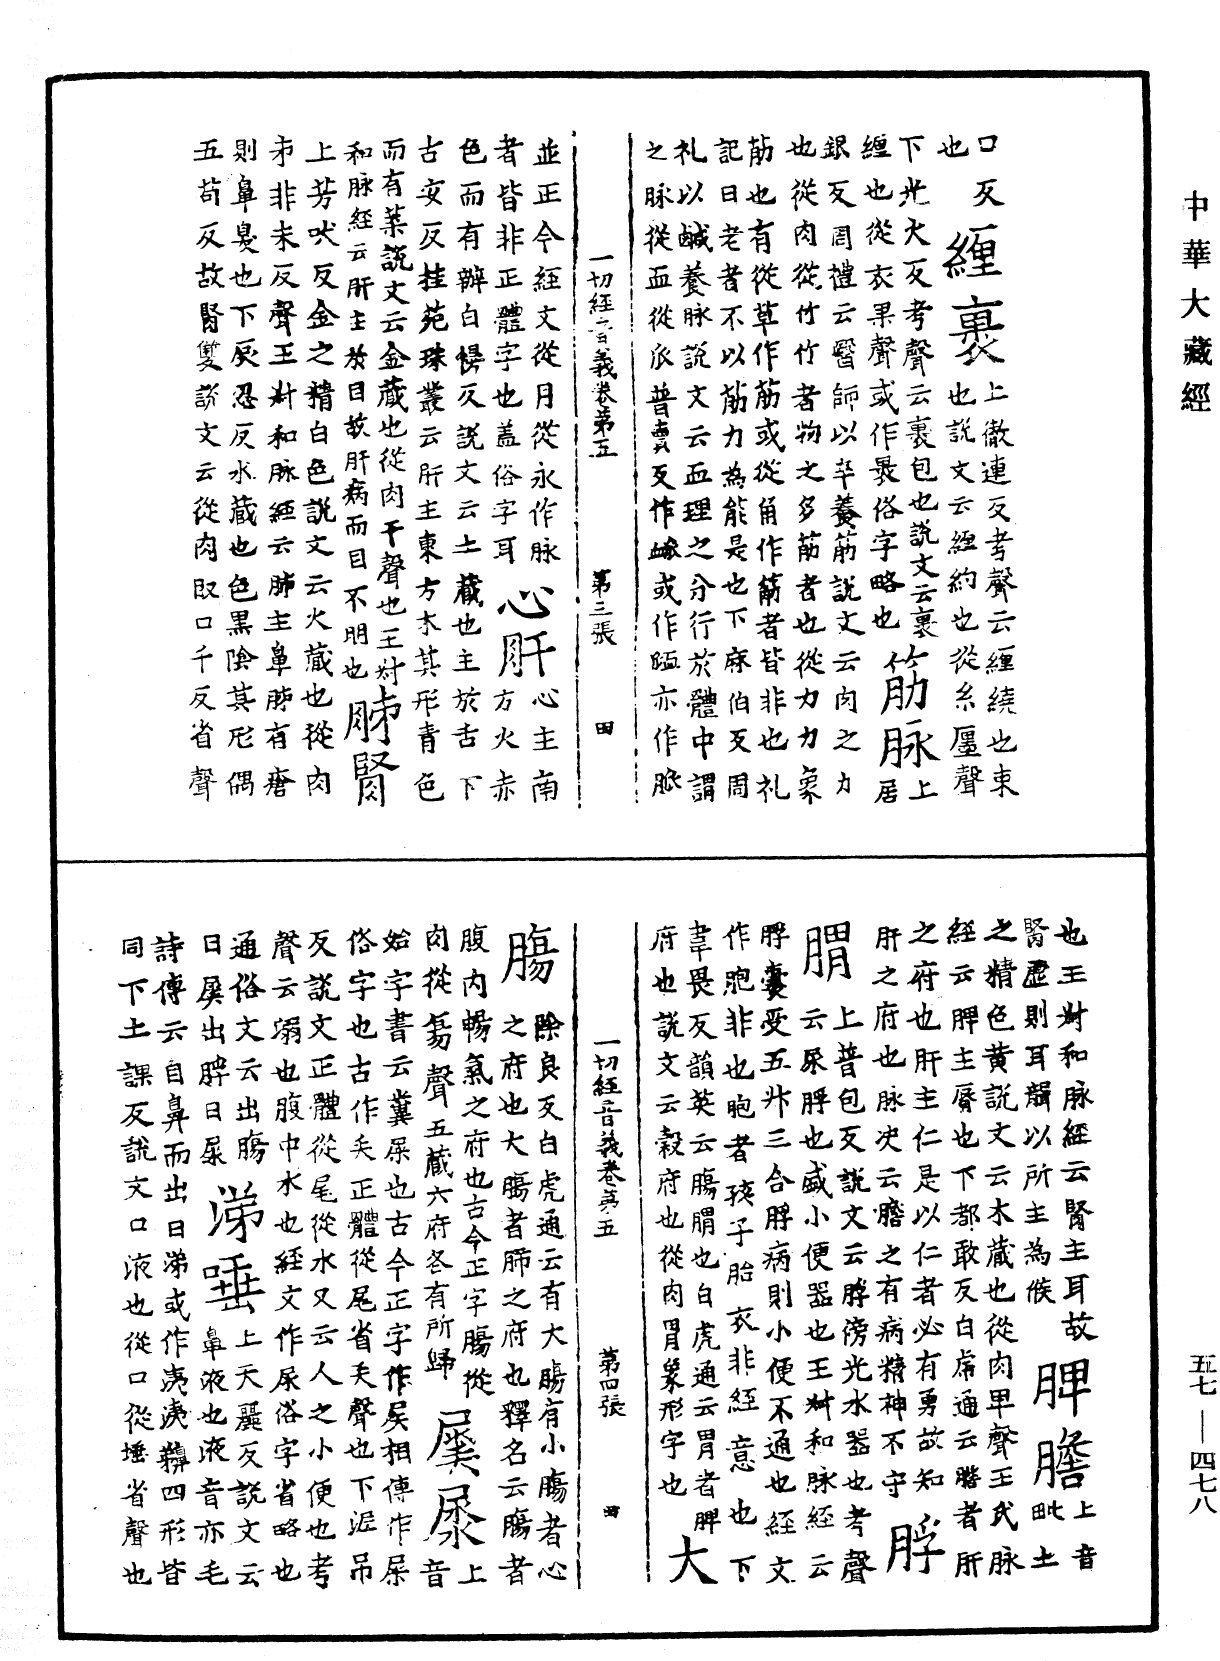 中華大藏經
口反
也
纏裹
上徹連反考聲云纏繞也束
也說文云纏約也從糸廛聲
下光火反考聲云裹包也說文云裹
纏也從衣果聲或作褁俗字略也
筋脉
上
居
銀反周禮云醫師以辛養筋說文云肉之力
也從肉從竹竹者物之多筋者也從力力象
筋也有從草作荕或從角作觔者皆非也礼
記曰老者不以筋力為能是也下麻伯反周
礼以鹹養脉說文云血理之分行於體中謂
之脉從血從𠂢普賣反作衇或作䘑亦作脈
一切經音義卷第五 第三張 田
並正今經文從月從永作脉
者皆非正體字也蓋俗字耳
心肝
心主南
方火赤
色而有辦白慢反說文云土藏也主於舌下
古安反桂苑珠叢云肝主東方木其形青色
而有葉說文云金藏也從肉干聲也王叔
和脉經云肝主於目故肝病而目不明也
肺腎
上芳吠反金之精白色說文云火藏也從肉
巿非未反聲王叔和脉經云肺主鼻肺有瘡
則鼻臭也下辰忍反水藏也色黑陰其形偶
五苟反故腎雙說文云從肉臤口千反省聲
也王叔和脉經云腎主耳故
腎虛則耳聾以所主為候
脾膽
上音
毗土
之精色黃說文云木藏也從肉卑聲王氏脉
經云脾主脣也下都敢反白虎通云膽者肝
之府也肝主仁是以仁者必有勇故知
肝之府也脉决云膽之有病精神不守
脬
膶
上普包反說文云脬傍光水器也考聲
云尿脬也盛小便器也王叔和脉經云
脬囊受五升三合脬病則小便不通也經文
作胞非也胞者孩子胎衣非經意也下
韋畏反韻英云腸胃也白虎通云胃者脾
府也說文云穀府也從肉胃象形字也
大
一切經音義卷第五 第四張 田
腸
除良反白虎通云有大腸有小腸者心
之府也大腸者肺之府也釋名云腸者
腹內暢氣之府也古今正字腸從
肉從昜聲五藏六府各有所歸
屎尿
上
音
始字書云糞屎也古今正字作𡱁相傳作屎
俗字也古作矢正體從尾省矢聲也下泥吊
反說文正體從尾從水又云人之小便也考
聲云溺也腹中水也經文作尿俗字省略也
通俗文云出腸
曰屎出脬曰尿
涕唾
上天麗反說文云
鼻液也液音亦毛
詩傳云自鼻而出曰涕或作洟洟𩕟四形皆
同下土課反說文口液也從口從埵省聲也
五七—四七八